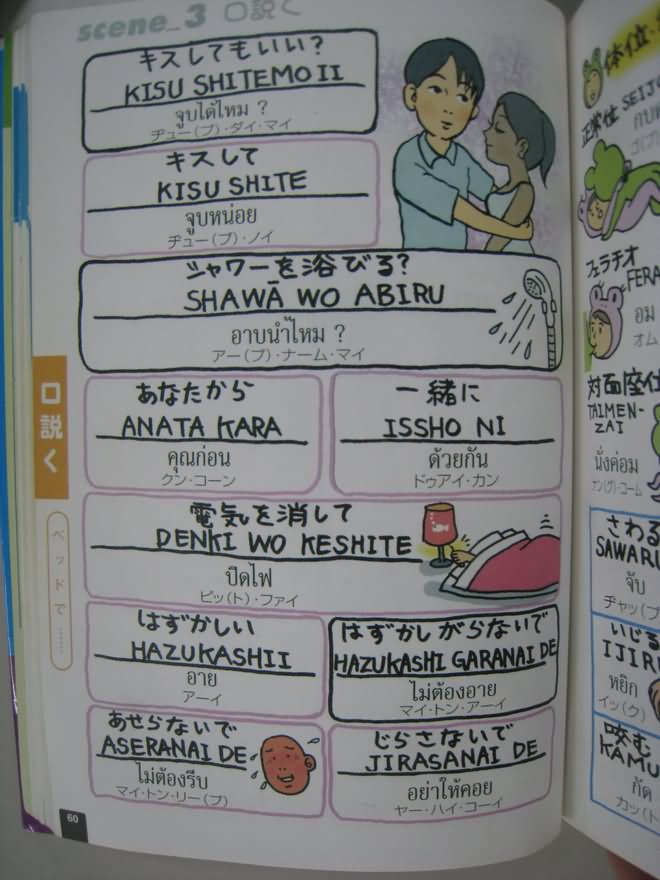 scene_3 口説く
キスしてもいい?
KISU SHITEMO II
จูบได้ไหม ?
ヂュー(プ)・ダイ・マイ
キスして
KISU SHITE
จูบหน่อย
ヂュー(プ)・ノイ
シャワーを浴びる?
SHAWĀ WO ABIRU
อาบน้ำไหม ?
アー(プ)・ナーム・マイ
あなたから
ANATA KARA
คุณก่อน
クン・コーン
一緒に
ISSHO NI
ด้วยกัน
ドゥアイ・カン
電気を消して
DENKI WO KESHITE
ปิดไฟ
ピッ(ト)・ファイ
はずかしい
HAZUKASHII
อาย
アーイ
はずかしがらないで
HAZUKASHI GARANAI DE
ไม่ต้องอาย
マイ・トン・アーイ
あせらないで
ASERANAI DE
ไม่ต้องรีบ
マイ・トン・リー(プ)
じらさないで
JIRASANAI DE
อย่าให้คอย
ヤー・ハイ・コーイ
口説く
ベッドで……
60
体位
正常位 SEIJO
フェラチオ
FERA
อม
オム
対面座位
TAIMEN-
ZAI
นั่งค่อม
ナン(グ)・コーム
さわる
SAWARU
จับ
ヂャッ(プ
いじる
IJIRU
หยิก
イッ(ク)
咬む
KAMU
กัด
カッ(ト